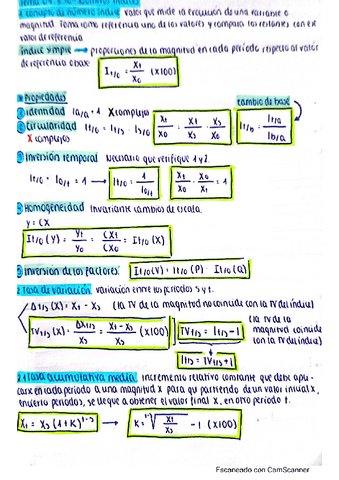 1. concepto de número índice valor que mide la evolución de una variable o
magnitud. Toma como referencia uno de los valores y compara los restantes con ese
valor de referencia
índice simple → proporciones de la magnitud en cada período respecto al valor
de referencia o base
It/0 = Xt / X0 (x100)
* Propiedades
① identidad Ia/a = 1 X complejos
② Circularidad It/0 = It/s · Is/0
X complejos
Xt/X0 = Xt/Xs · Xs/X0
cambio de base
It/b = It/a / Ib/a
③ Inversión temporal Necesario que verifique 1 y 2.
It/0 · I0/t = 1 → It/0 = 1 / I0/t
Xt/X0 · X0/Xt = 1
④ Homogeneidad Invariante cambios de escala.
y = CX
It/0 (Y) = Yt/Y0 = CXt/CX0 = It/0 (X)
⑤ inversión de los factores. It/0(V) = It/0 (P) · It/0(Q)
2. Tasa de variación variación entre los períodos s y t.
Δt/s (X) = Xt - Xs (la TV de la magnitud no coincide con la TV del índice)
TVt/s (X) = ΔXt/s / Xs = Xt - Xs / Xs (x100)
TVt/s = It/s - 1
(la TV de la
magnitud coincide
con la TV del índice)
It/s = TVt/s + 1
2.1 Tasa acumulativa media. Incremento relativo constante que debe apli-
carse en cada período a una magnitud X para q partiendo de un valor inicial Xs
en cierto período s, se llegue a obtener el valor final Xt en otro período t.
Xt = Xs (1+K)^t-s → K = t-s√Xt/Xs - 1 (x100)
Escaneado con CamScanner